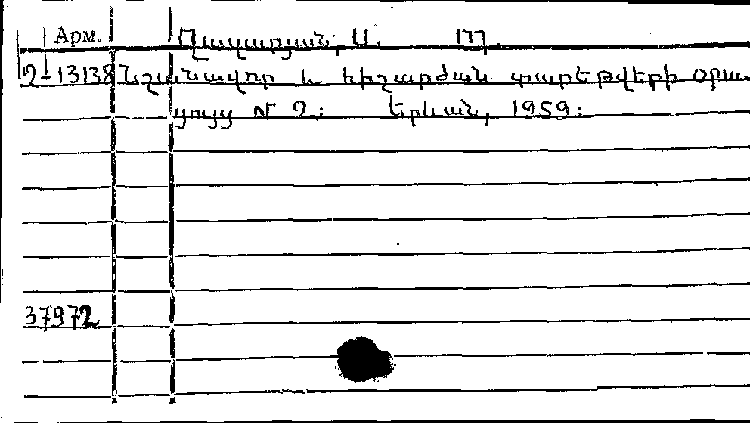 Арм. Ղազարյան, Ա.
2-13138 Նշանավոր և հիշարժան տարեթվերի օրա-
ցույց № 2: Երևան, 1959:
37972